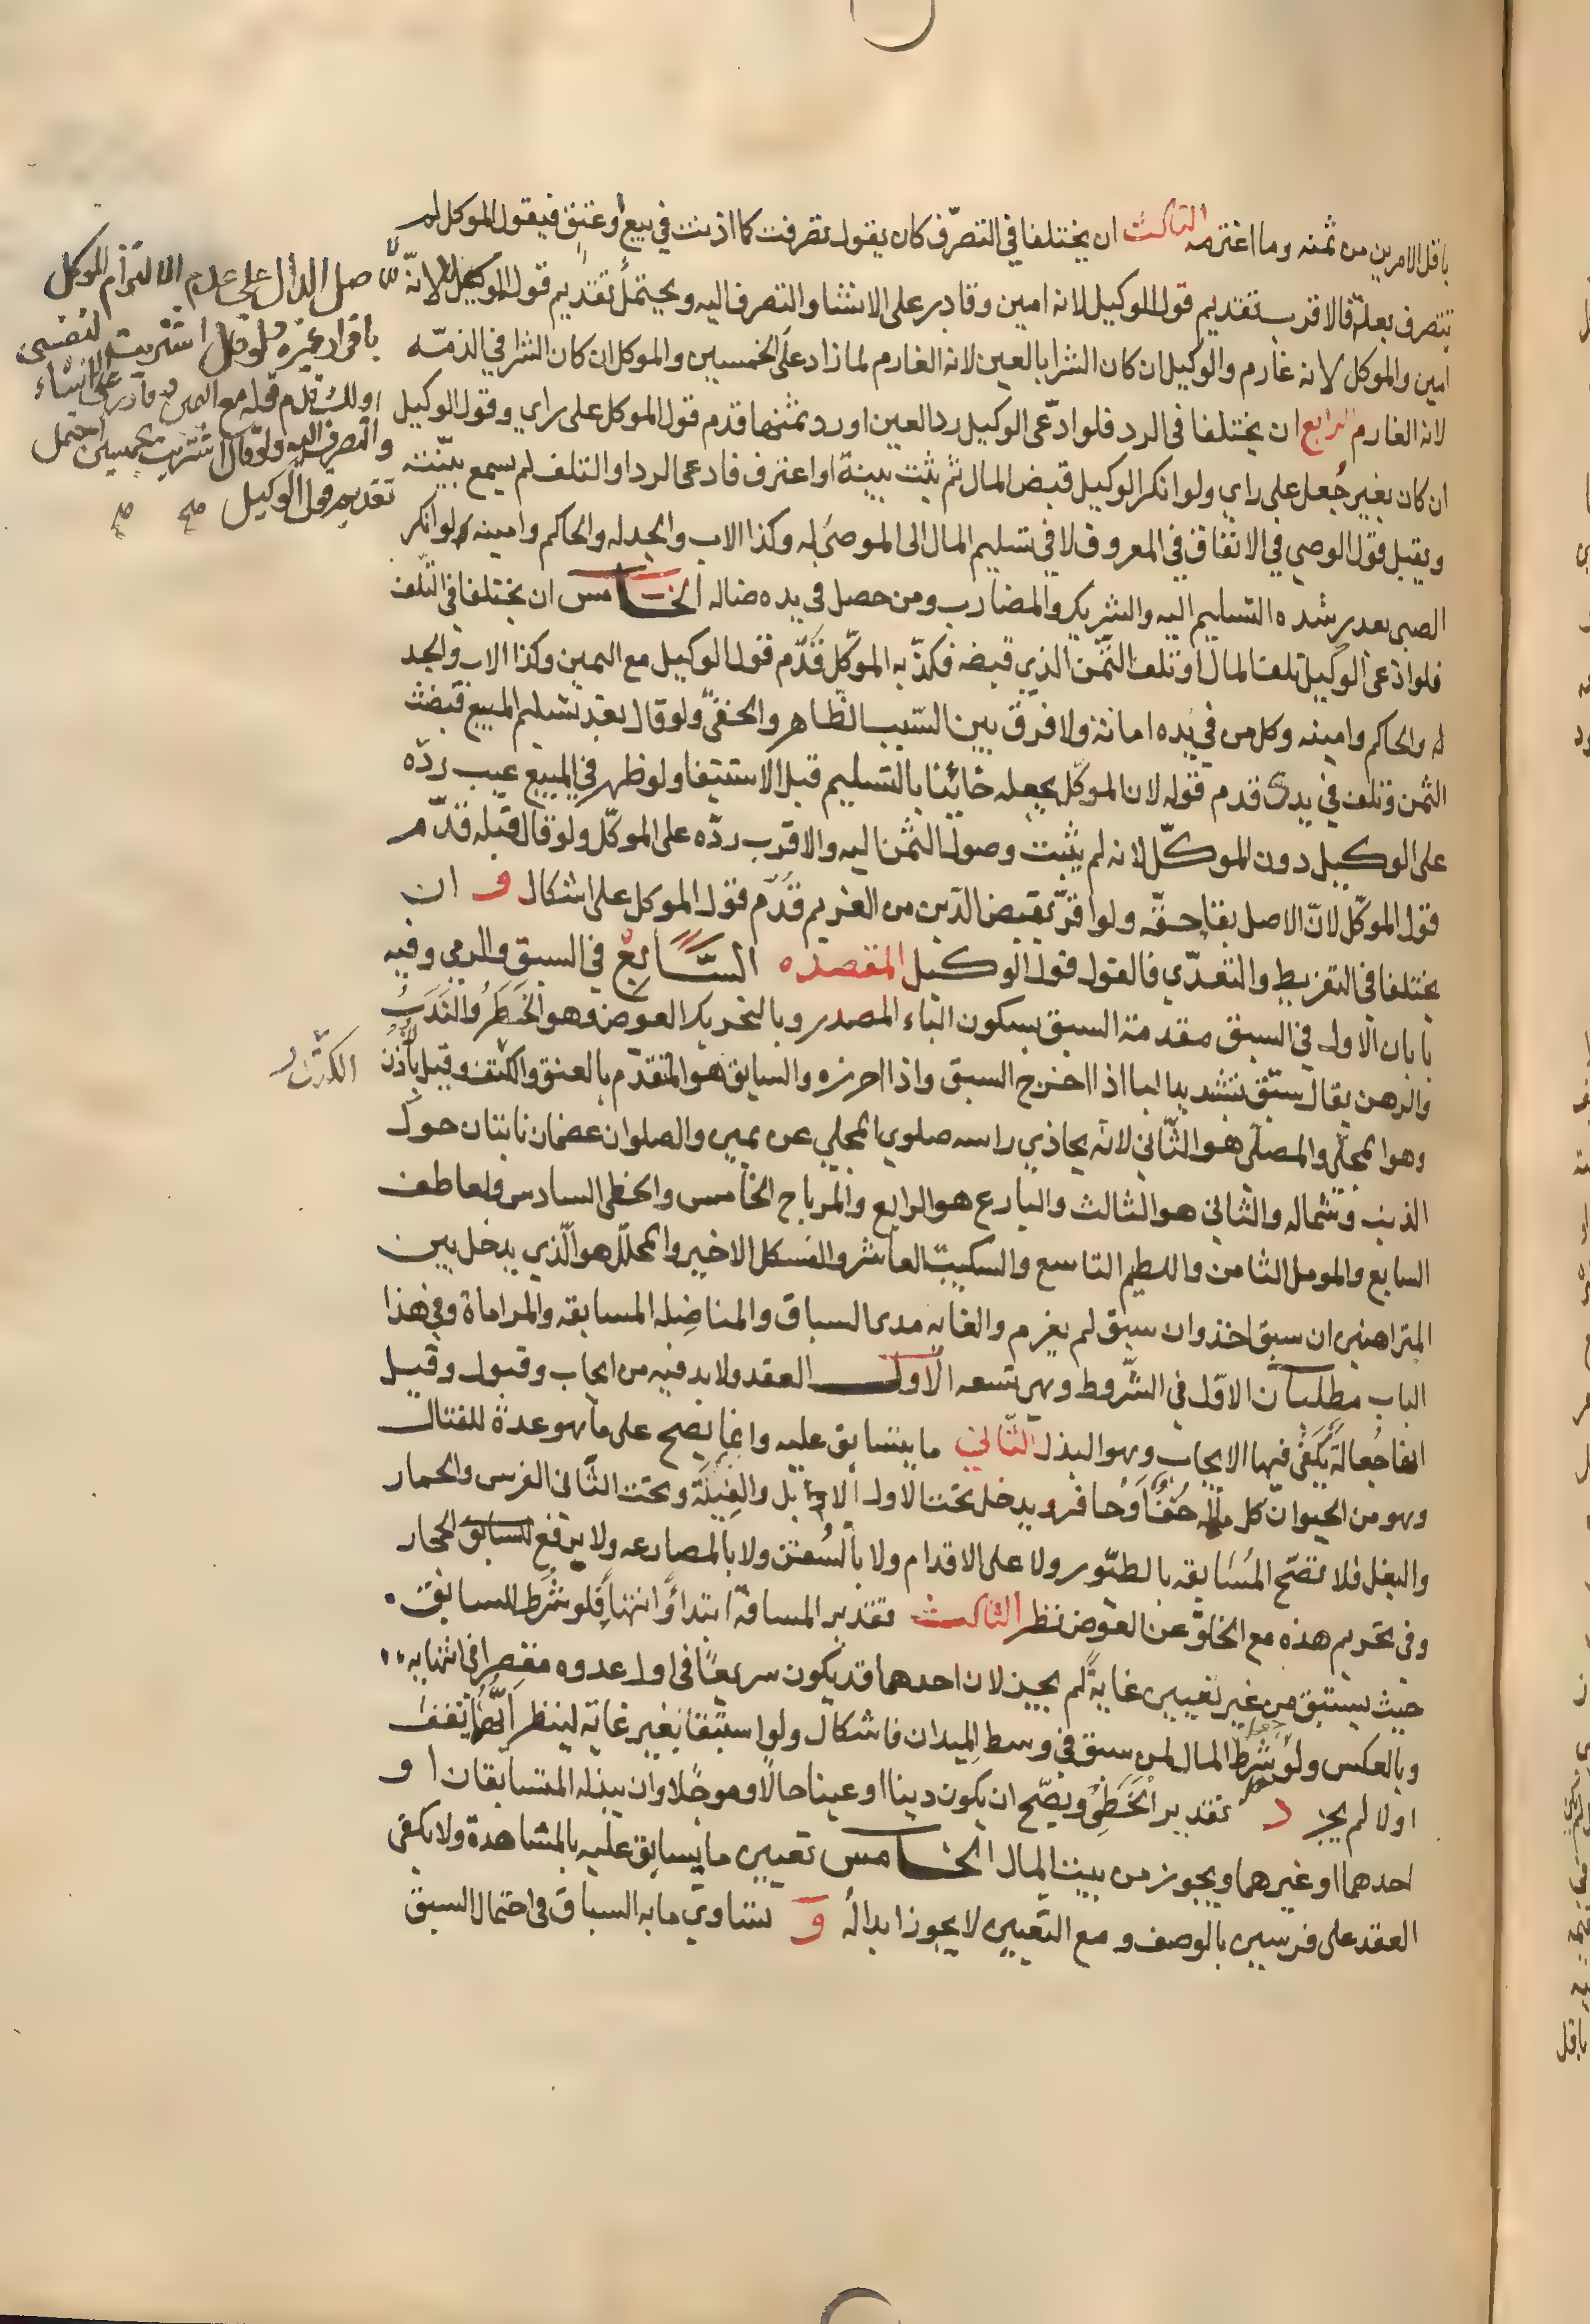 باقل الامرين من ثمنه وما اغترمه الثالث ان يختلفا في التصرّف كان يقول تصرفت كما اذنت في بيع او عتق فيقول الموكل لم
تتصرف بعد فالاقرب تقديم قول الوكيل لانه امين وقادر على الانشا والتصرف اليه ويحتمل تقديم قول الموكل للا
امين والموكل لانه غارم والوكيل ان كان الشرا بالعين لانه الغارم لما زاد على الخمسين والموكل ان كان الشرا في الذمّه
لانه الغارم الرابع ان يختلفا في الرد فلو ادّعى الوكيل رد العين او رد ثمنها قدم قول الموكل على راي وقول الوكيل
ان كان بغير جُعل على راي ولو انكر الوكيل قبض المال ثم ثبت ببينة او اعترف فادعى الرد او التلف لم يسمع بيّنته
ويقبل قول الوصي في الانفاق في المعروف لا في تسليم المال الى الموصى له وكذا الاب والجد له والحاكم وامينه لو انكر
الصبي بعد رشده التسليم اليه والشريك والمضارب ومن حصل في يده ضاله الخامس ان يختلفا في التّلف
فلو ادّعى الوكيل تلف المال او تلف الثّمن الذي قبضه فكذّبه الموكّل قدّم قول الوكيل مع اليمين وكذا الاب والجد
له والحاكم وامينه وكل من في يده امانة ولا فرق بين السّبب الظّاهر والخفي ولو قال بعد تسليم المبيع قبضت
الثمن وتلف في يدي قدم قوله لان الموكّل يجعله خائنا بالتسليم قبل الاستيفا ولو ظهر في المبيع عيب ردّه
على الوكيل دون الموكّل لانه لم يثبت وصول الثّمن اليه والاقرب ردّه على الموكّل ولو قال قبله قدّم
قول الموكّل لانّ الاصل بقا حقّه ولو اقرّ بقبض الدّين من الغريم قُدّم قول الموكل على اشكال و ان
يختلفا في التفريط والتعدّي فالقول قول الوكيل المقصد ه السّابع في السبق والرمي وفيه
بابان الاول في السبق مقدمة السبق بسكون الباء المصدر وبالتحريك العوض وهو الخَطَرُ والنَّدَبُ
والرهن يقال سبّق بتشديد البا اذا اخرج السبق واذا احرزه والسابق هو المتقدّم بالعنق والكتف وقيل بالاذن
وهو المجلّي والمصلّي هو الثّاني لانّه يحاذي راسه صلوي المجلي عن يمين والصلوان عظمان نابتان حول
الذنب وشماله والثاني هو الثالث والبارع هو الرابع والمرتاح الخامس والحظى السادس والعاطف
السابع والمومل الثامن واللطيم التاسع والسكيت العاشر والفسكل الاخير والمحلل هو الّذي يدخل بين
المتراهنين ان سبق اخذ وان سبق لم يغرم والغايه مدى السباق والمناضله المسابقه والمراماة وفي هذا
الباب مطلبان الاوّل في الشّروط وهي تسعه الاول العقد ولا بد فيه من ايجاب وقبول وقيل
انها جُعالة يكفى فيها الايجاب وهو البذل الثّاني ما يتسابق عليه وانما يصح على ما هو عدة للقتال
وهو من الحيوان كل ماله خُفٌّ او حافر ويدخل تحت الاول الابل والفيلة وتحت الثّاني الفرس والحمار
والبغل فلا تصّح المُسَابقه بالطيّور ولا على الاقدام ولا بالسُفن ولا بالمصارعه ولا برفع الحجار
وفي تحريم هذه مع الخلوّ عن العوض نظر الثالث تقدير المسافة ابتداءً وانتهاً فلو شُرط للسابق
حيث يستبق من غير تعيين غايةٍ لم يجز لان احدهما قد يكون سريعًا في اول عدوه مقصر في انتهايه
وبالعكس ولو شُرط المال لمن سبق في وسط الميدان فاشكال ولو استبقا بغير غاية لينظر ايّهما يقف
اولا لم يجز د تقدير الخَطَر ويصّح ان يكون دينا او عينا حالاً ومؤجلا وان يبذله المتسابقان او
احدهما او غيرهما ويجوز من بيت المال الخامس تعيين ما يسابق عليه بالمشاهدة ولا يكفي
العقد على فرسين بالوصف ومع التعيين لا يجوز ابدالُه و تساوي ما به السباق في احتمال السبق
صل الدال على عدم التزام الموكل
باقرار غيره ولو قال اشتريت لنفسي
او لك قدم قوله مع اليمين وقادر على الانشاء
والتصرف اليه ولو قال اشتريت بخمسين احتمل
تقديم قول الوكيل صح صح